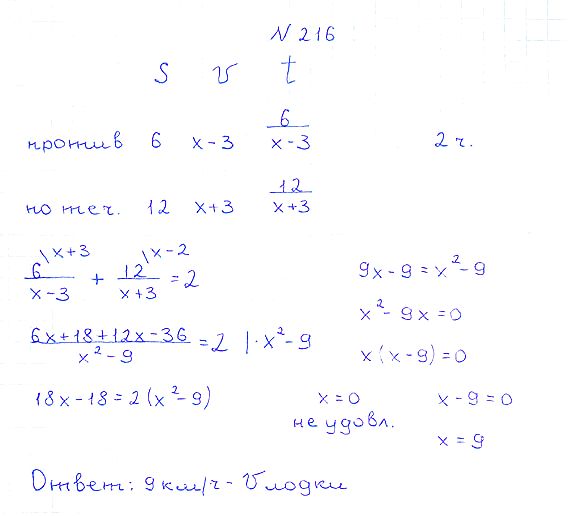 N 216
S v t
против 6 x-3 6/(x-3) 2 ч.
по теч. 12 x+3 12/(x+3)
6/(x-3) \x+3 + 12/(x+3) \x-2 = 2
(6x+18+12x-36)/(x²-9) = 2 |·x²-9
18x-18=2(x²-9)
9x-9=x²-9
x²-9x=0
x(x-9)=0
x=0 x-9=0
не удовл.
x=9
Ответ: 9 км/ч - V лодки